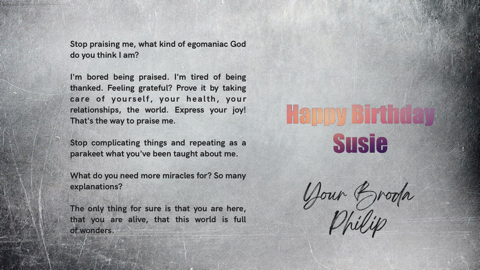 Stop praising me, what kind of egomaniac God
do you think I am?
I'm bored being praised. I'm tired of being
thanked. Feeling grateful? Prove it by taking
care of yourself, your health, your
relationships, the world. Express your joy!
That's the way to praise me.
Stop complicating things and repeating as a
parakeet what you've been taught about me.
What do you need more miracles for? So many
explanations?
The only thing for sure is that you are here,
that you are alive, that this world is full
of wonders.
Happy Birthday
Susie
Your Broda
Philip